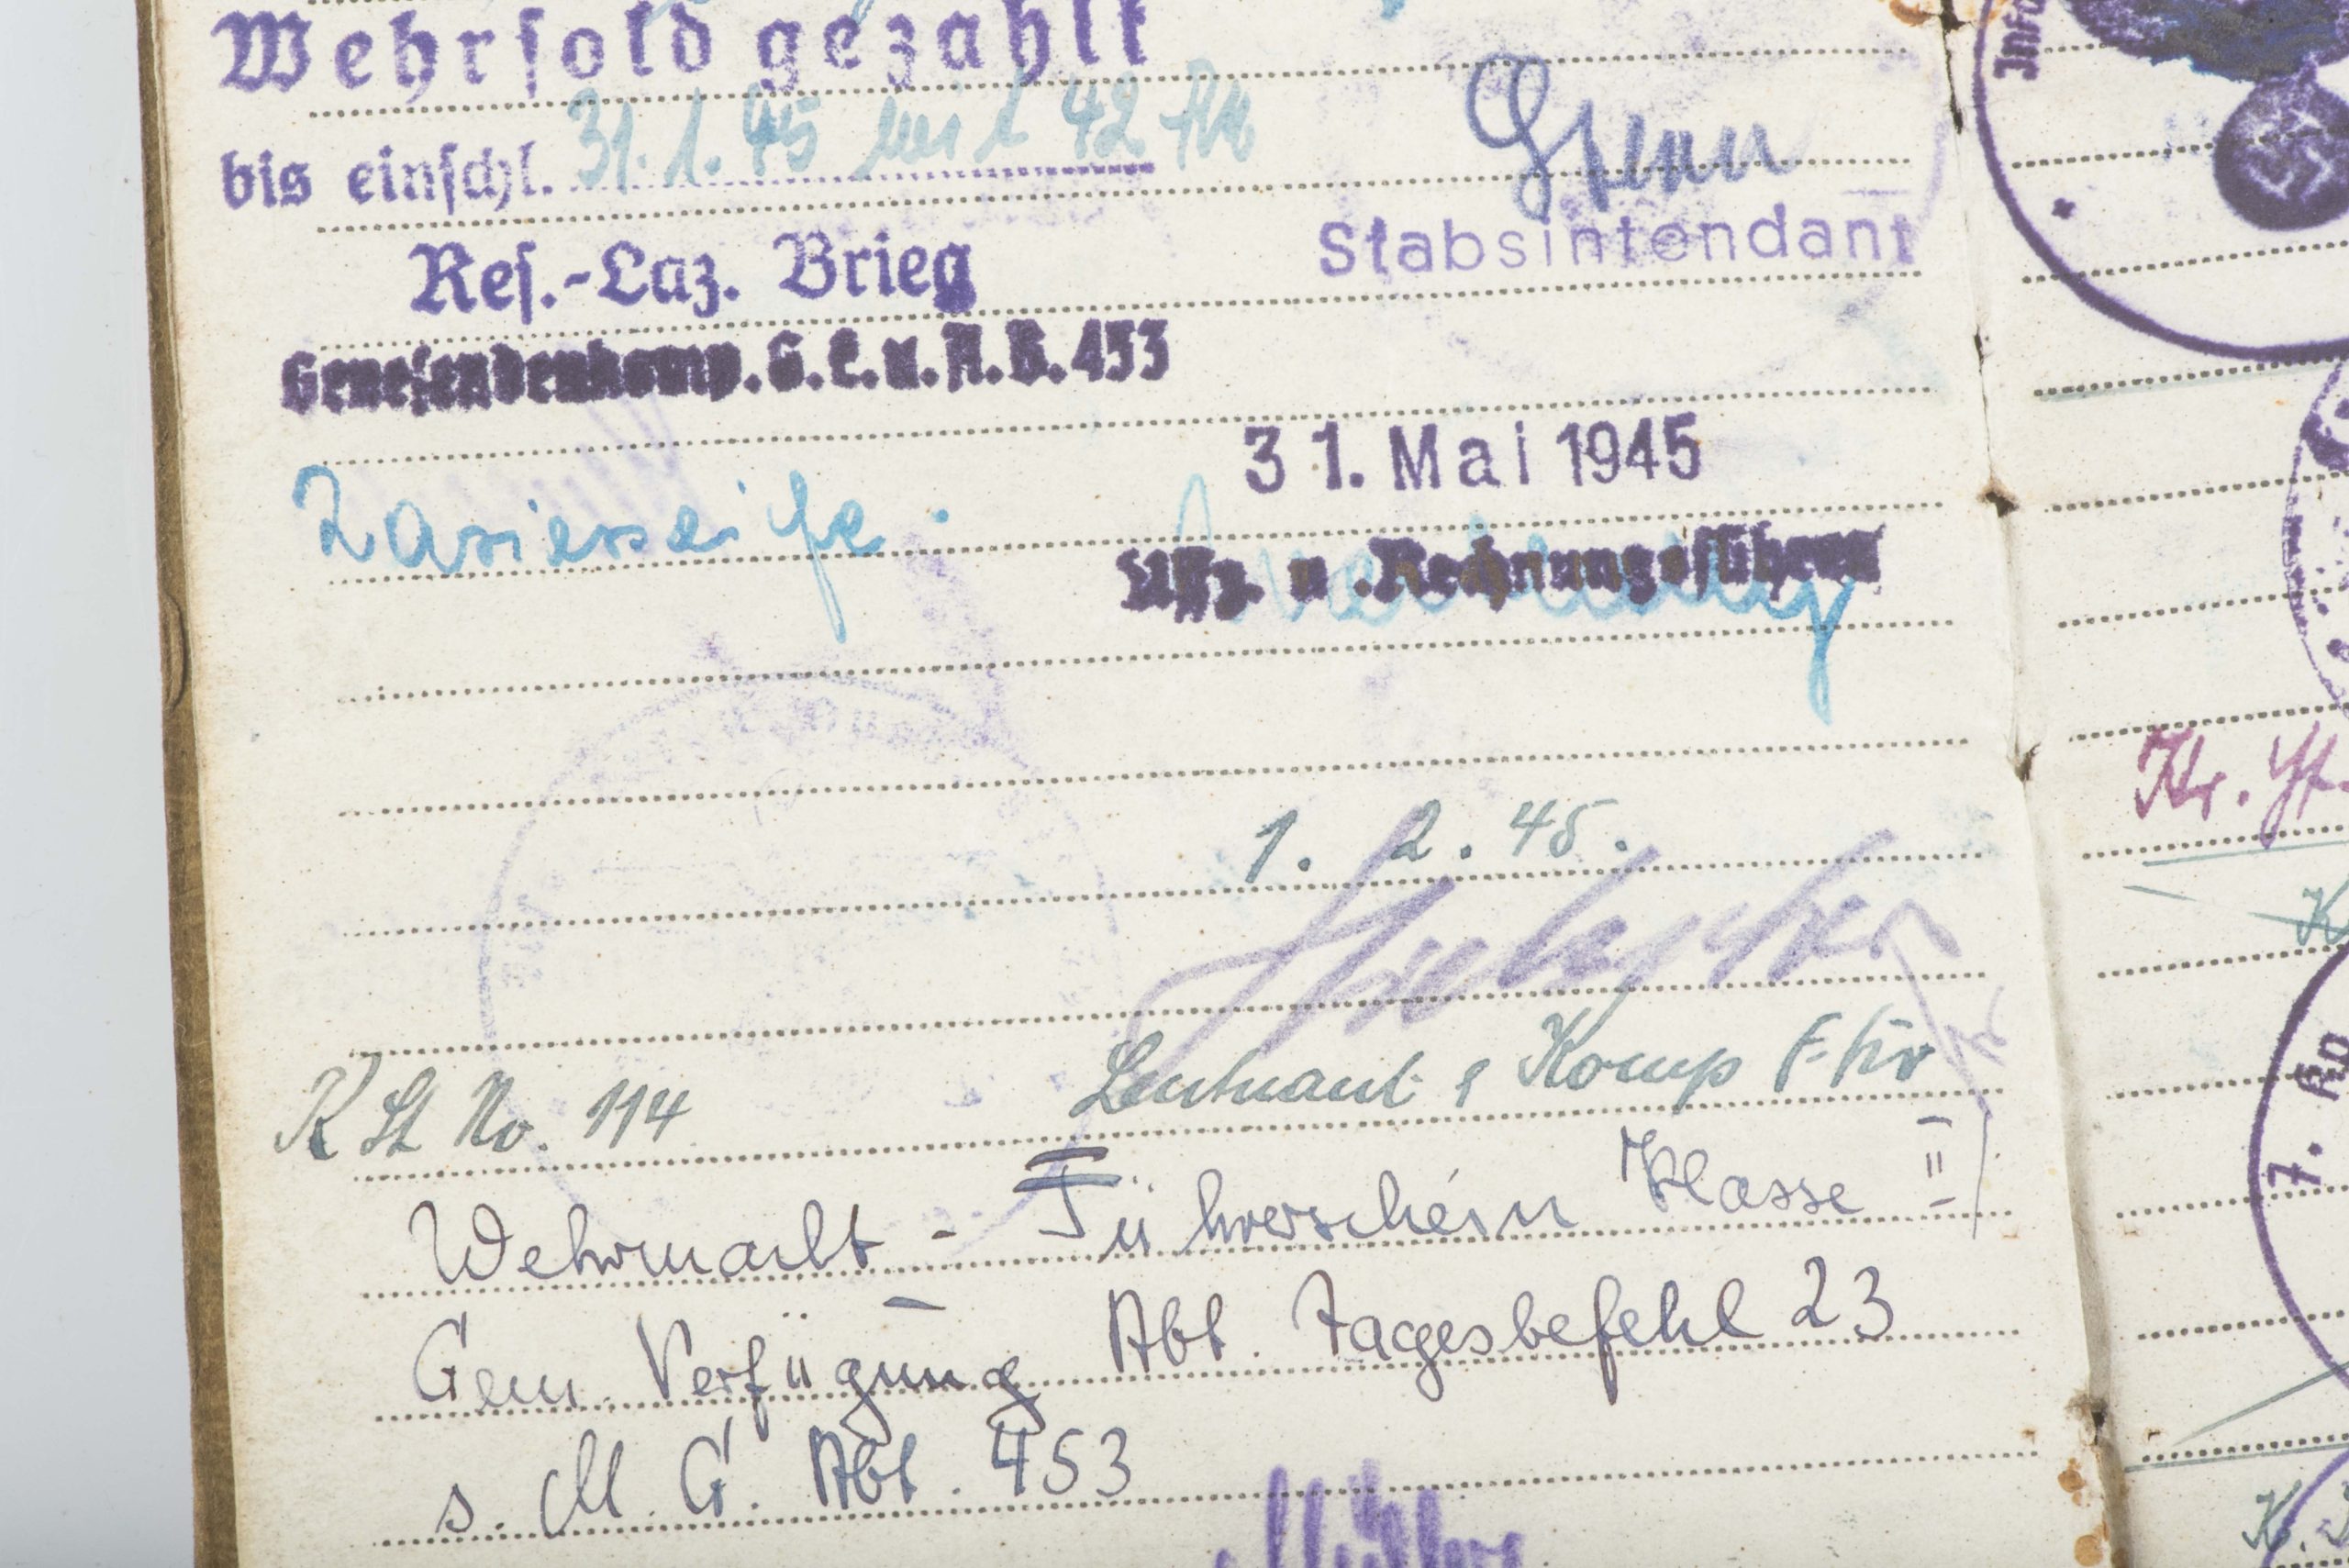 Wehrsold gezahlt
bis einschl. 31.1.45 mit 42 RM
Stabsintendant
Res.-Laz. Brieg
Genesendenkomp. G.E.u.A.B. 453
31. Mai 1945
Rasierseife.
Uffz. u. Rechnungsführer
1. 2. 45.
Leutnant & Komp Fhr
K St No. 114
Wehrmacht - Führerschein Klasse II
Gem. Verfügung Abt. Tagesbefehl 23
s. M. G. Abt. 453
Inf
Kr.
K
7. Ko
K.